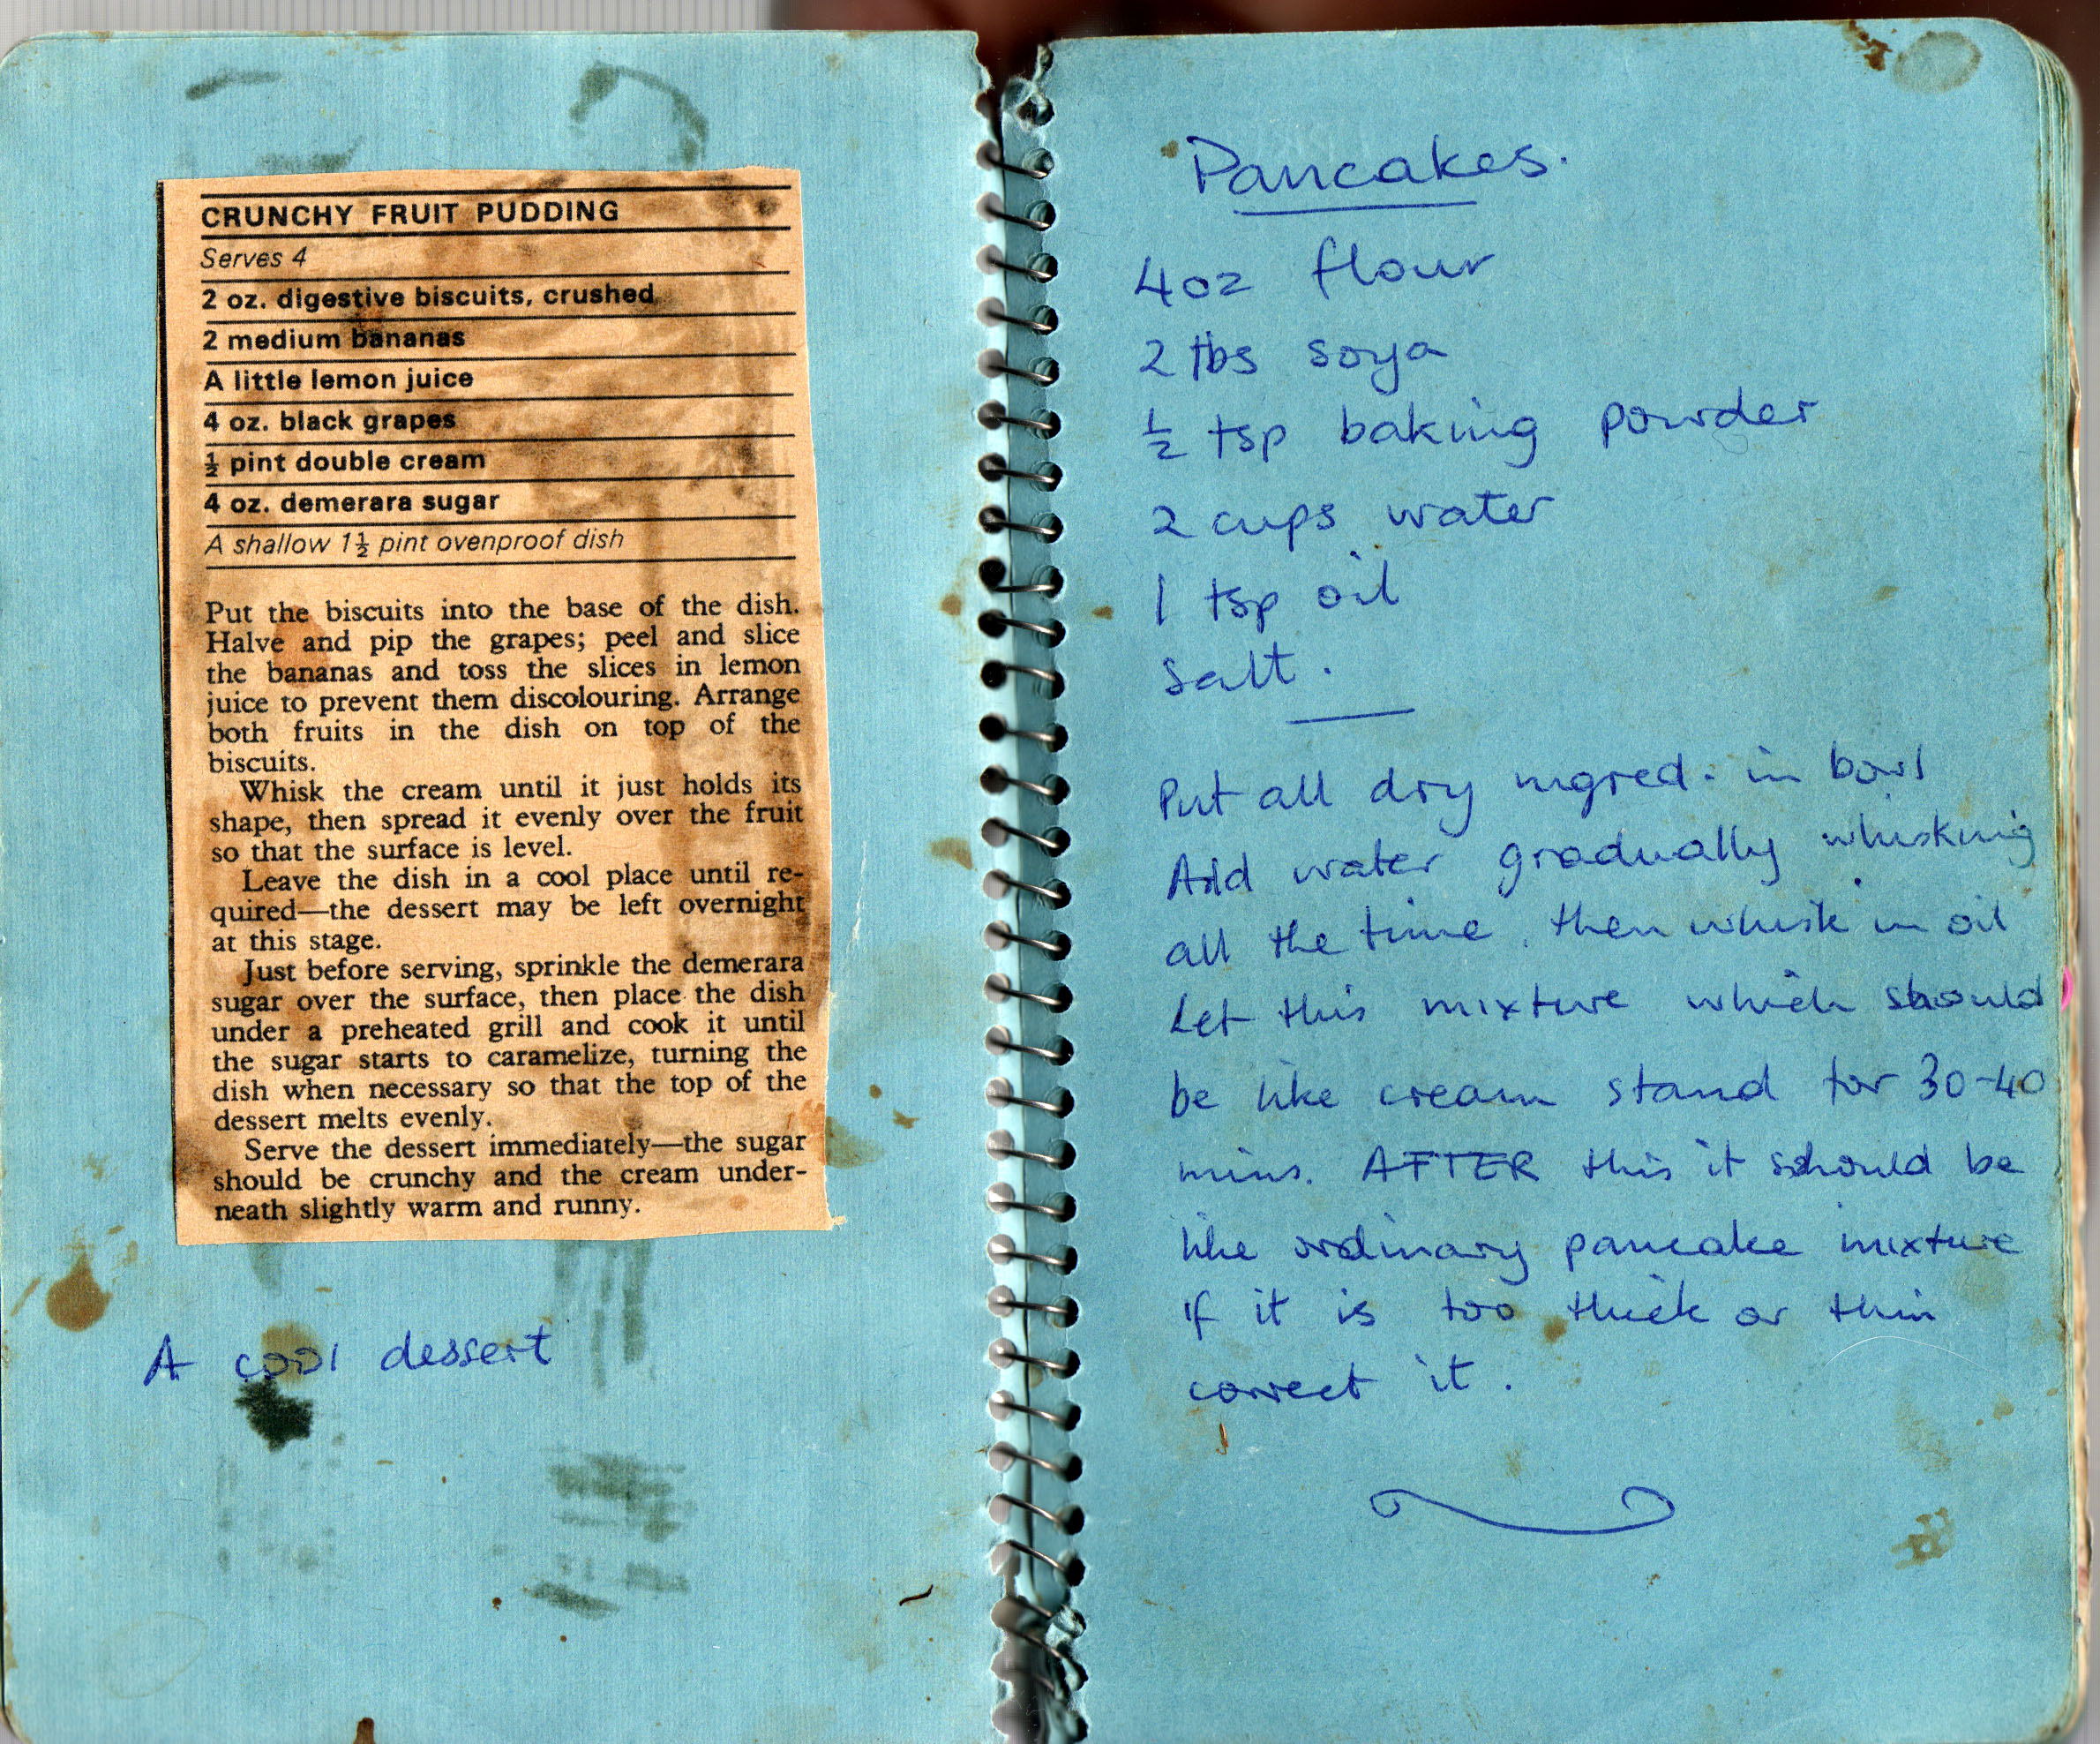 CRUNCHY FRUIT PUDDING
Serves 4
2 oz. digestive biscuits, crushed
2 medium bananas
A little lemon juice
4 oz. black grapes
½ pint double cream
4 oz. demerara sugar
A shallow 1½ pint ovenproof dish
Put the biscuits into the base of the dish.
Halve and pip the grapes; peel and slice
the bananas and toss the slices in lemon
juice to prevent them discolouring. Arrange
both fruits in the dish on top of the
biscuits.
Whisk the cream until it just holds its
shape, then spread it evenly over the fruit
so that the surface is level.
Leave the dish in a cool place until re-
quired—the dessert may be left overnight
at this stage.
Just before serving, sprinkle the demerara
sugar over the surface, then place the dish
under a preheated grill and cook it until
the sugar starts to caramelize, turning the
dish when necessary so that the top of the
dessert melts evenly.
Serve the dessert immediately—the sugar
should be crunchy and the cream under-
neath slightly warm and runny.
A cool dessert
Pancakes.
4oz flour
2 tbs soya
½ tsp baking powder
2 cups water
1 tsp oil
salt.
Put all dry ingred. in bowl
Add water gradually whisking
all the time, then whisk in oil
Let this mixture which should
be like cream stand for 30-40
mins. AFTER this it should be
like ordinary pancake mixture
If it is too thick or thin
correct it.